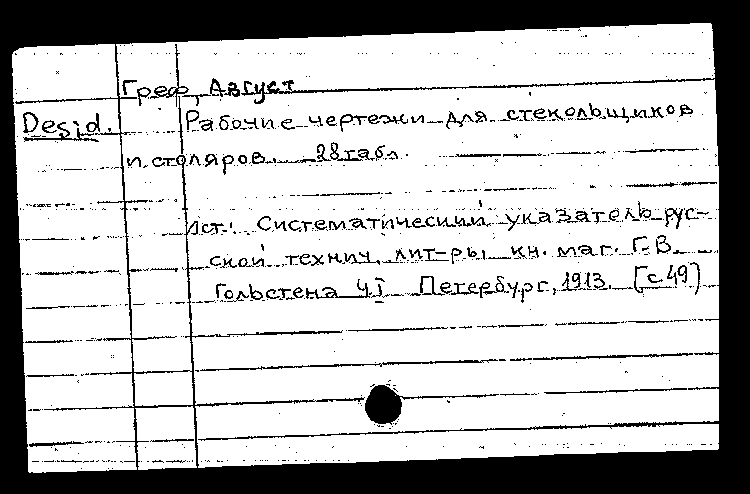 Греф, Август
Desid. Рабочие чертежи для стекольщиков
и столяров. 28 табл.
Ист.: Систематический указатель рус-
ской технич. лит-ры, кн. маг. Г.В.
Гольстена Ч I Петербург, 1913. [с 49]